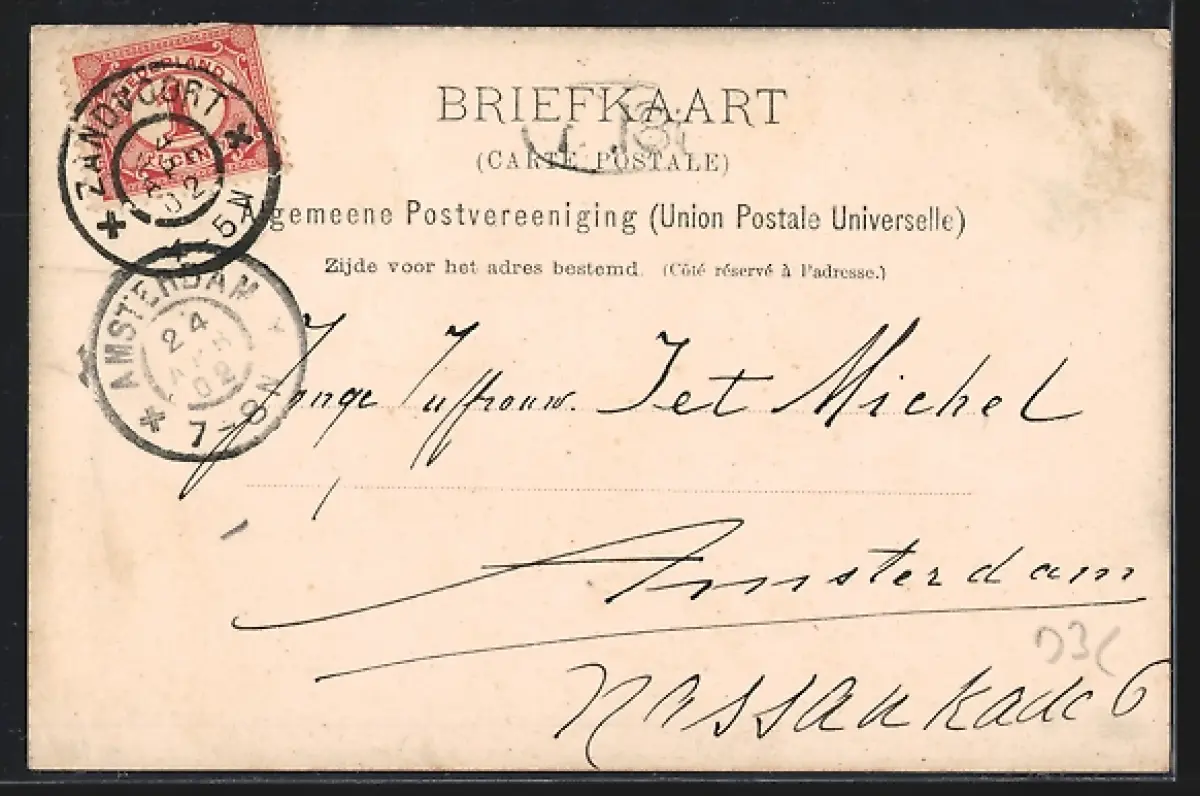 NEDERLAND
1
CENT
ZANDVOORT
24
APR
02
4-5N
BRIEFKAART
(CARTE POSTALE)
Algemeene Postvereeniging (Union Postale Universelle)
Zijde voor het adres bestemd. (Côté réservé à l'adresse.)
AMSTERDAM
24
APR
02
7-8N
Jonge Juffrouw. Jet Michel
Amsterdam
Nassaukade 6